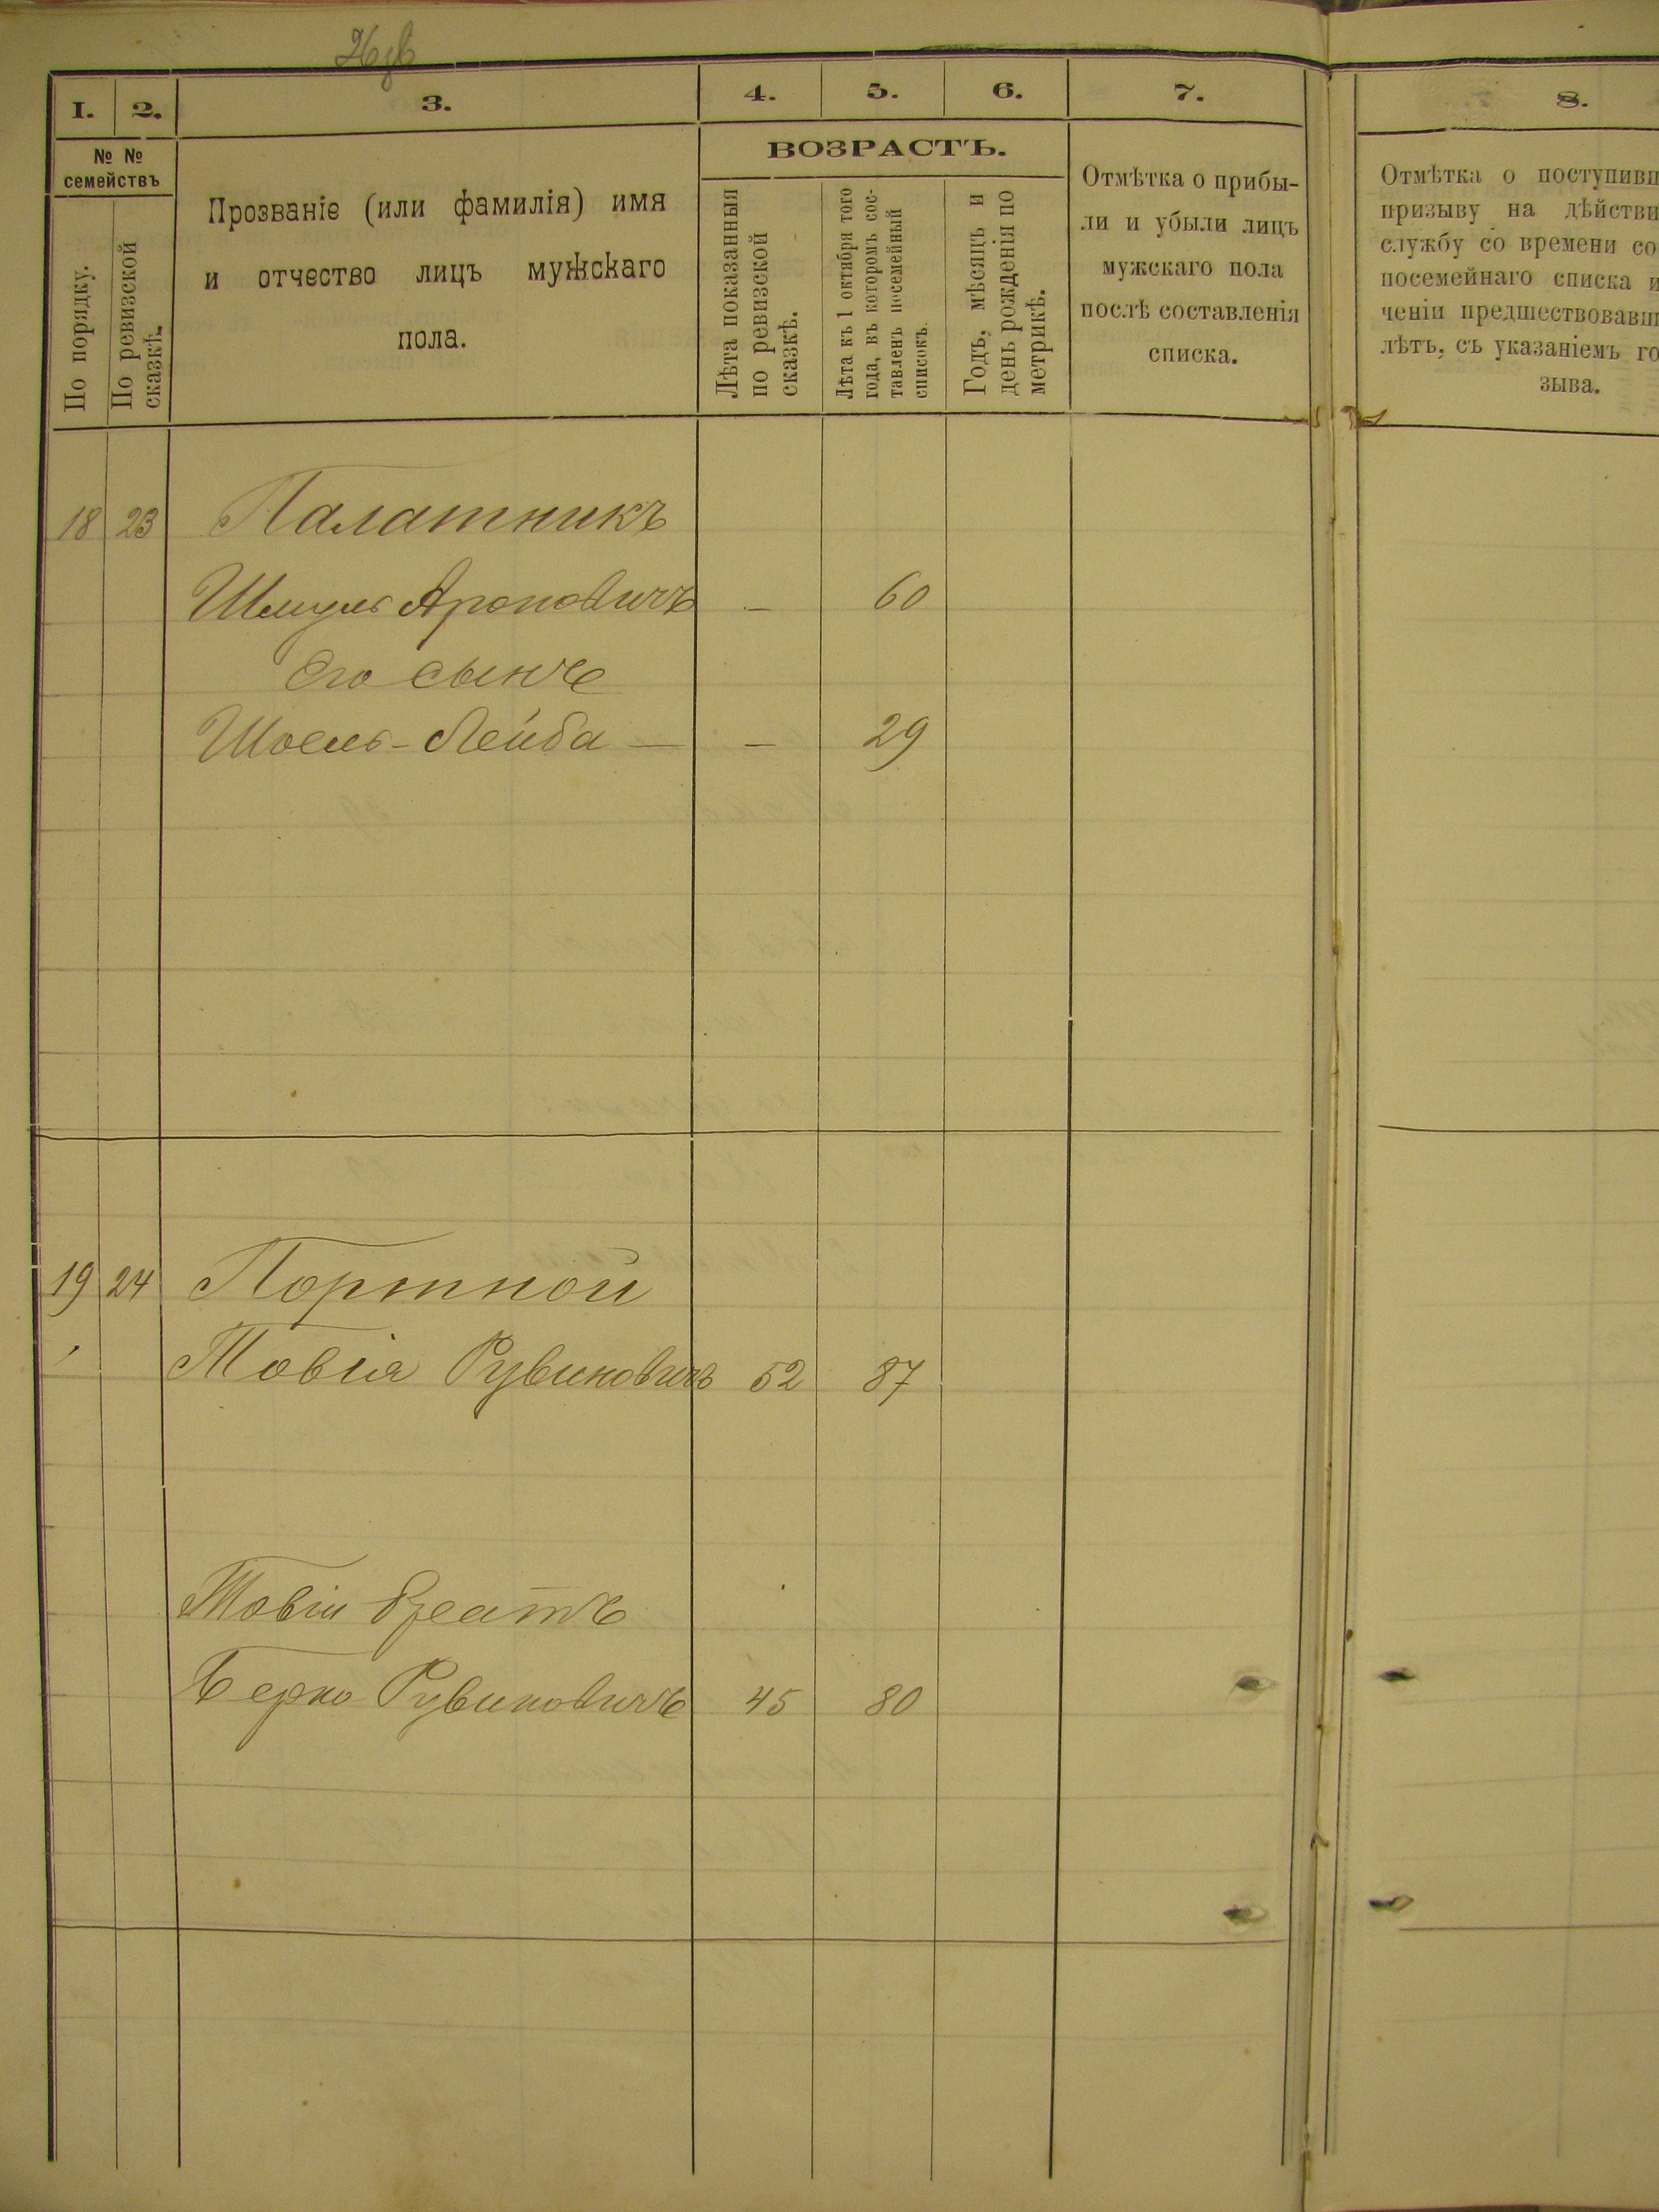 1. 2. 3. 4. 5. 6. 7. 8.
№ № семействъ
По порядку.
По ревизской сказкѣ.
Прозваніе (или фамилія) имя
и отчество лицъ мужскаго
пола.
ВОЗРАСТЪ.
Лѣта показанныя
по ревизской
сказкѣ.
Лѣта къ 1 октября того
года, въ которомъ сос-
тавленъ посемейный
списокъ.
Годъ, мѣсяцъ и
день рожденія по
метрикѣ.
Отмѣтка о прибы-
ли и убыли лицъ
мужскаго пола
послѣ составленія
списка.
Отмѣтка о поступивш
призыву на дѣйстви
службу со времени со
посемейнаго списка и
ченіи предшествовавш
лѣтъ, съ указаніемъ го
зыва.
18 23 Палатникъ
Шмуль Ароновичъ — 60
Его сынъ
Шоель-Лейба — — 29
19 24 Портной
Товія Рувиновичъ 52 87
Товіи братъ
Берко Рувиновичъ 45 80